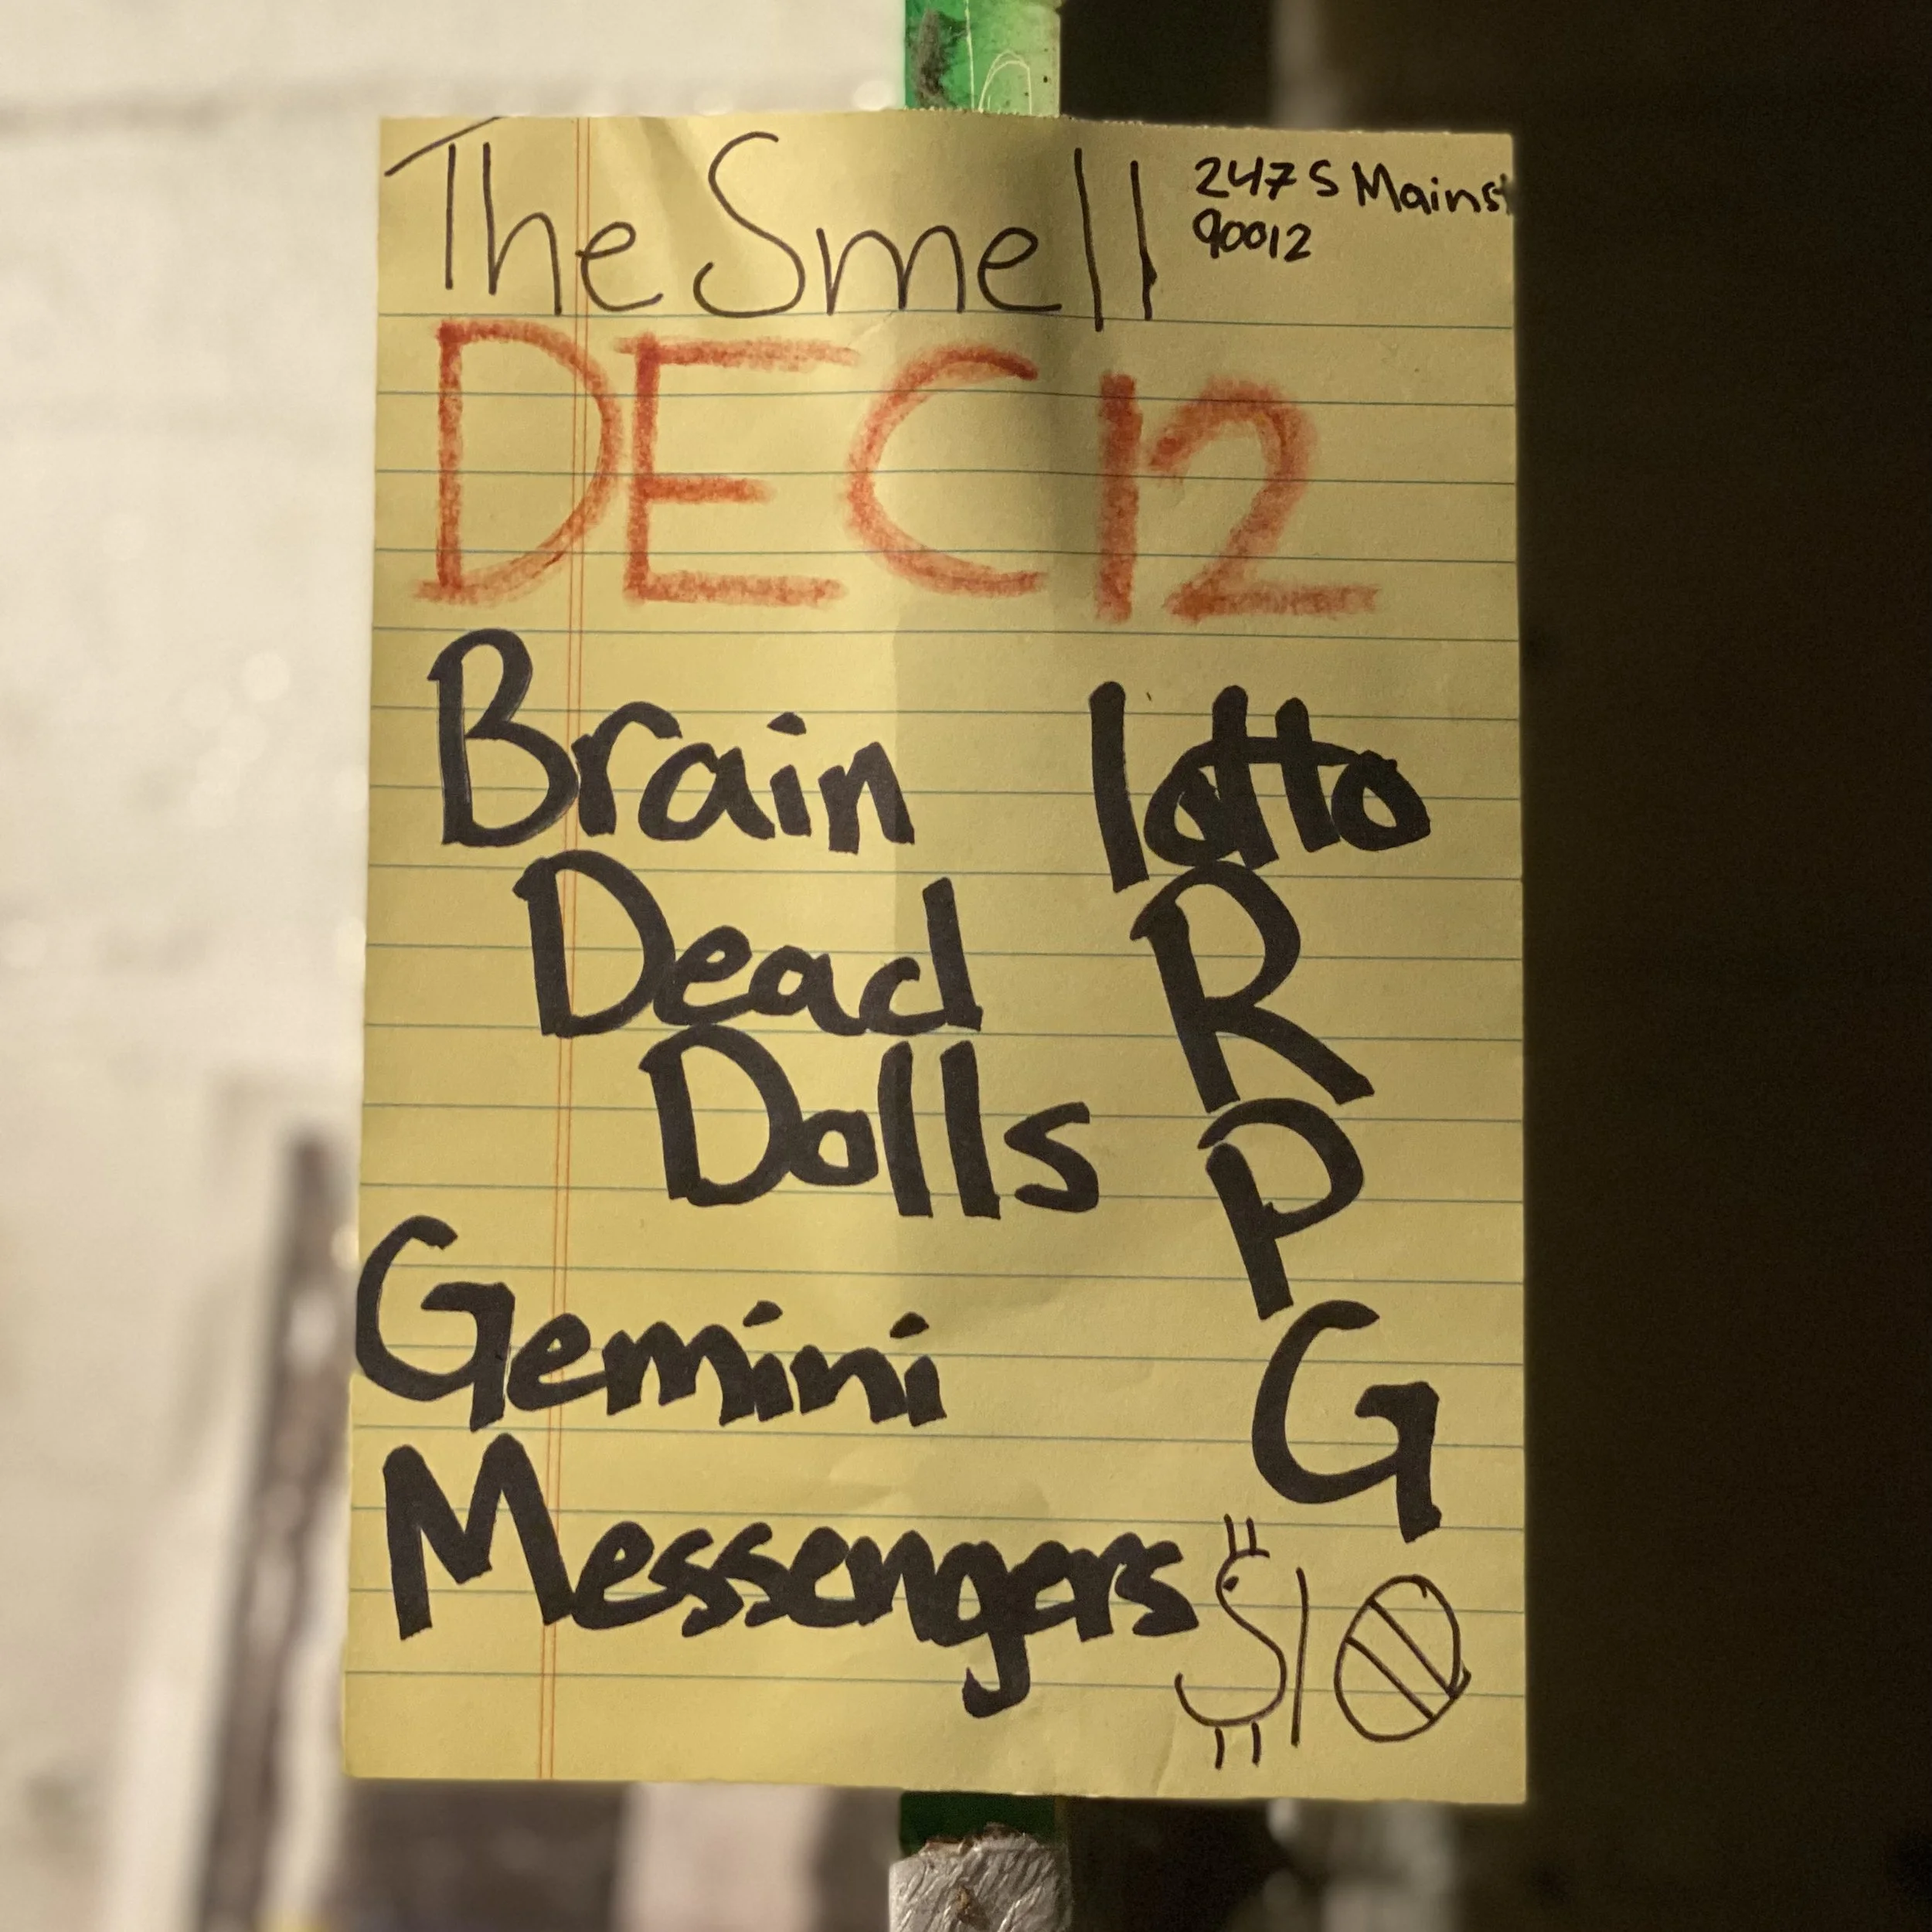 The Smell
247 S Main st
90012
DEC 12
Brain
Dead
Dolls
lotto
R
P
G
Gemini
Messengers
$10